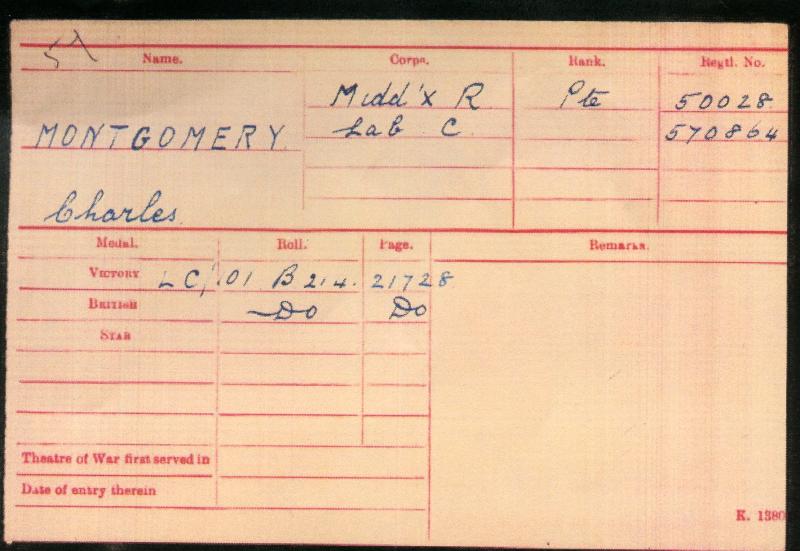 57
Name. Corps. Rank. Regtl. No.
Midd'x R Pte 50028
MONTGOMERY Lab C. 570864
Charles.
Medal. Roll. Page. Remarks.
VICTORY LC/101 B 214. 21728
BRITISH —Do Do
STAR
Theatre of War first served in
Date of entry therein
K. 1380